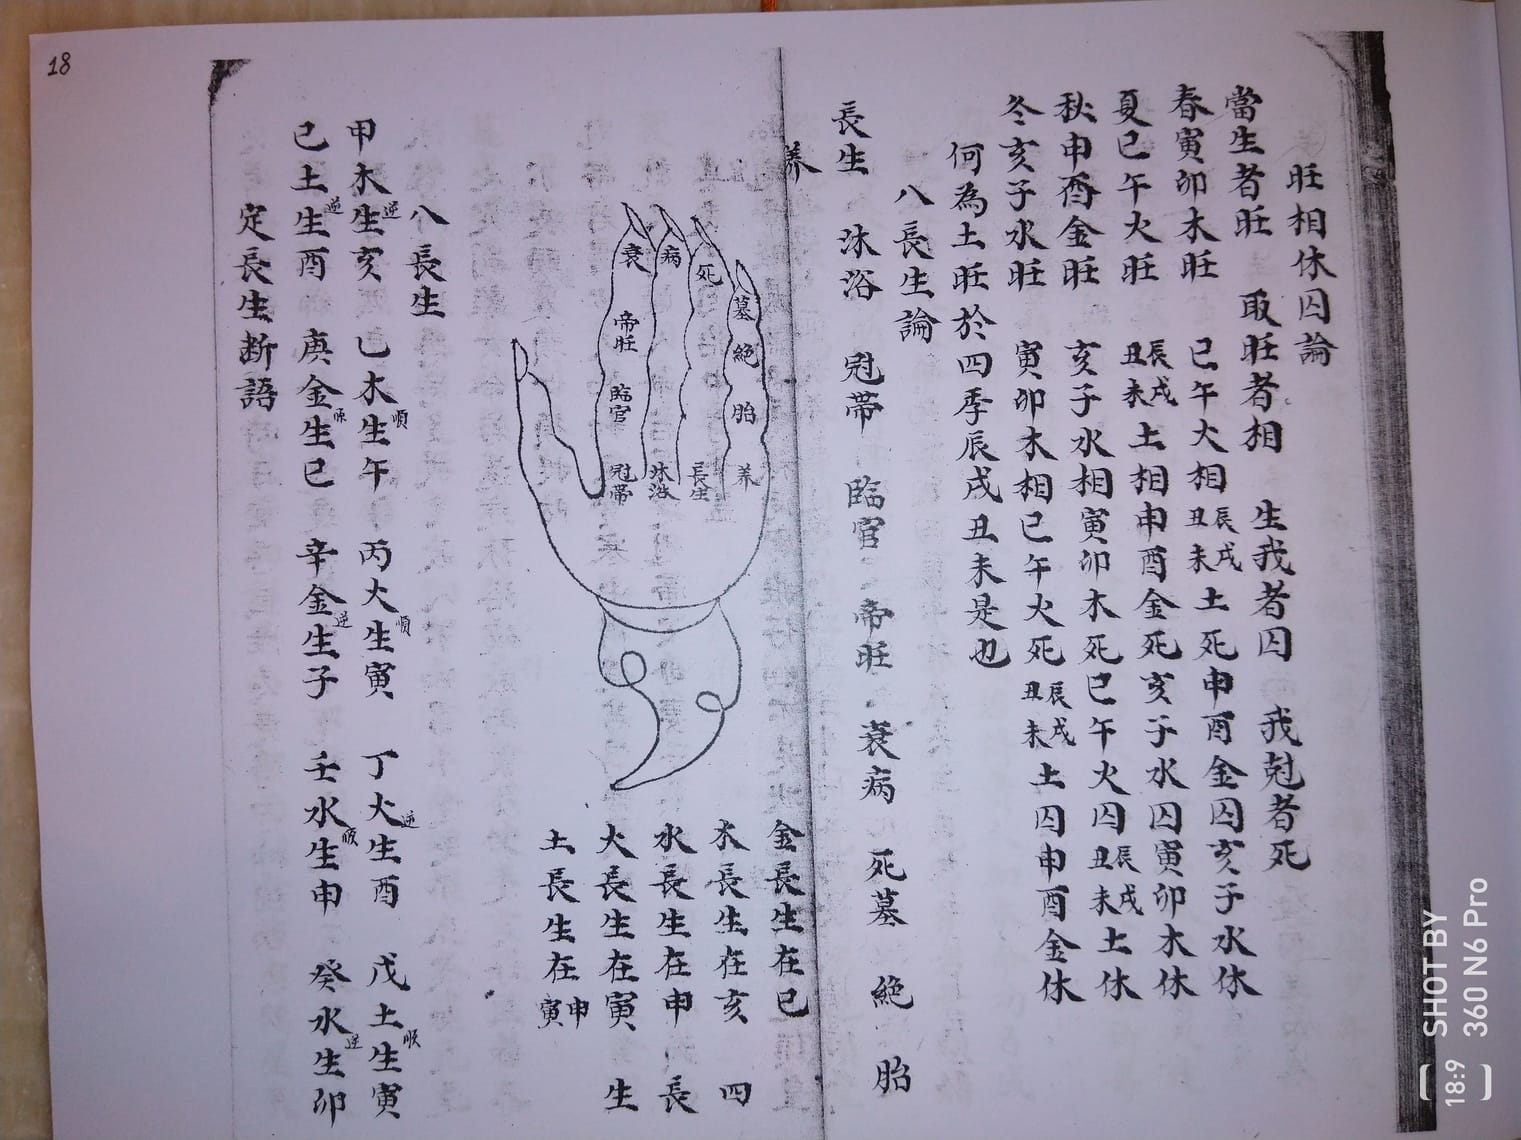 18
旺相休囚論
當生者旺 取旺者相 生我者囚 我尅者死
春寅卯木旺 巳午火相 辰戌丑未土死 申酉金囚 亥子水休
夏巳午火旺 辰戌丑未土相 申酉金死 亥子水囚 寅卯木休
秋申酉金旺 亥子水相 寅卯木死 巳午火囚 辰戌丑未土休
冬亥子水旺 寅卯木相 巳午火死 辰戌丑未土囚 申酉金休
何為土旺於四季辰戌丑未是也
八長生論
長生 沐浴 冠帶 臨官 帝旺 衰病 死墓 絕 胎
养
衰 病 死 墓
帝旺 絕
臨官 胎
冠帶 沐浴 長生 养
金長生在巳
木長生在亥 四
水長生在申 長
火長生在寅 生
土長生在申寅
八長生
甲木生亥逆 乙木生午順 丙火生寅順 丁火生酉逆 戊土生寅順
己土生酉逆 庚金生巳顺 辛金生子逆 壬水生申顺 癸水生卯逆
定長生断語
SHOT BY
360 N6 Pro
18:9